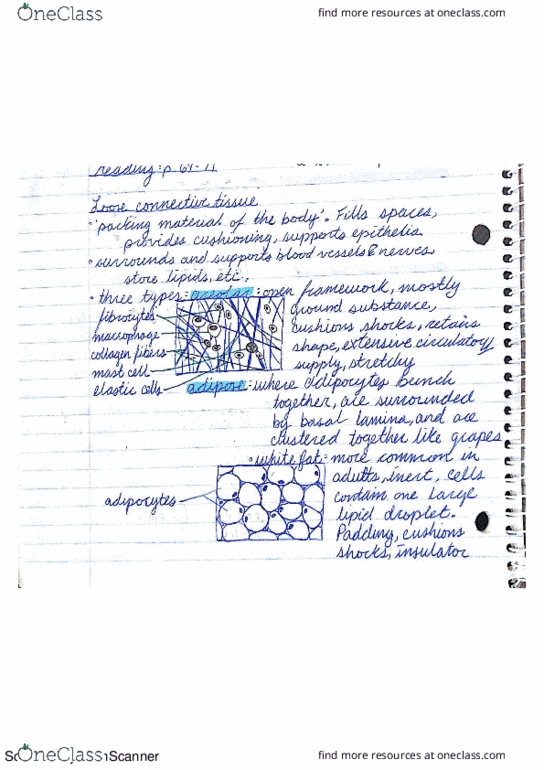 OneClass
find more resources at oneclass.com
reading: p. 64-71
Loose connective tissue
• "packing material of the body". Fills spaces,
provides cushioning, supports epithelia.
• surrounds and supports blood vessels & nerves
store lipids, etc.,
• three types: areolar: open framework, mostly
ground substance,
cushions shocks, retains
shape, extensive circulatory
supply, stretchy
fibrocytes
macrophage
collagen fibers
mast cell
elastic cells
adipose: where adipocytes bunch
together, are surrounded
by basal lamina, and are
clustered together like grapes
• white fat: more common in
adults, inert, cells
contain one large
lipid droplet.
Padding, cushions
shocks, insulator
adipocytes
OneClass
Scanner
find more resources at oneclass.com